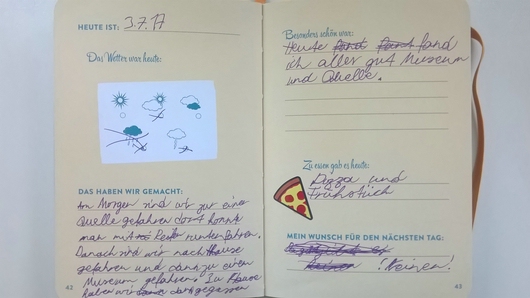 HEUTE IST: 3.7.17
Das Wetter war heute:
DAS HABEN WIR GEMACHT:
Am Morgen sind wir zur einer
Quelle gefahren dort konnte
man mit runterfahren.
Danach sind wir nach Hause
gefahren und dann zu einen
Museum gefahren. Zu Hause
haben wir dann gegessen
42
Besonders schön war:
Heute fand
ich alles gut Museum
und Quelle.
Zu essen gab es heute:
Pizza und
Frühstück
MEIN WUNSCH FÜR DEN NÄCHSTEN TAG:
! Keinen!
43